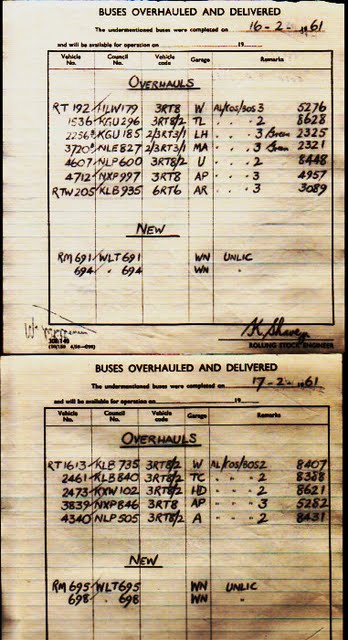 BUSES OVERHAULED AND DELIVERED
The undermentioned buses were completed on 16-2-1961
and will be available for operation on 19
Vehicle No. Council No. Vehicle code Garage Remarks
OVERHAULS
RT 192 HLW179 3RT8 W AL/KOS/BOS 3 5276
1536 KGU 296 3RT8/2 TL " " " 2 8628
2256 KGU 185 2/3RT3/1 LH " " " 3 Green 2325
3720 NLE 827 2/3RT3/1 MA " " " 3 Green 2321
4607 NLP 600 3RT8/2 U " " " 2 8448
4712 NXP 997 3RT8 AP " " " 3 4957
RTW 205 KLB 935 6RT6 AR " " " 3 3089
NEW
RM 691 WLT 691 WN UNLIC
694 " 694 WN "
ROLLING STOCK ENGINEER
BUSES OVERHAULED AND DELIVERED
The undermentioned buses were completed on 17-2-1961
and will be available for operation on 19
Vehicle No. Council No. Vehicle code Garage Remarks
OVERHAULS
RT 1613 KLB 735 3RT8/2 W AL/KOS/BOS 2 8407
2461 KLB 840 3RT8/2 TC " " " 2 8388
2473 KXW 102 3RT8/2 HD " " " 2 8621
3839 NXP 846 3RT8 AP " " " 3 5282
4340 NLP 505 3RT8/2 A " " " 2 8431
NEW
RM 695 WLT 695 WN UNLIC
698 " 698 WN "